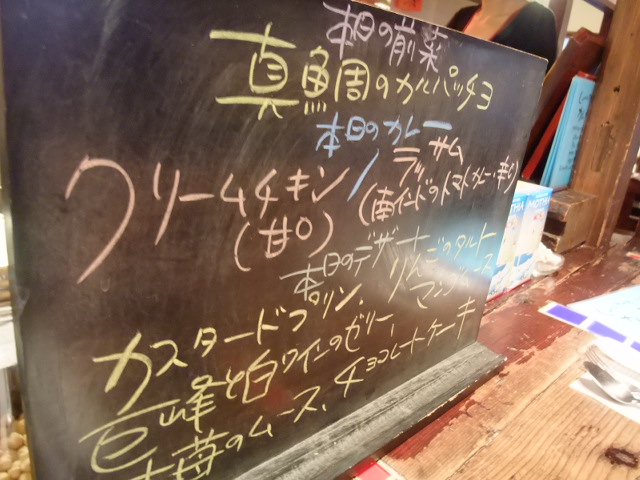 本日の前菜
真鯛のカルパッチョ
本日のカレー
クリームチキン / ラッサム
(甘口) (南インドのトマトカレー・辛口)
本日のデザート
カスタードプリン、りんごのタルト
マンゴームース
巨峰と白ワインのゼリー、
苺のムース、チョコレートケーキ